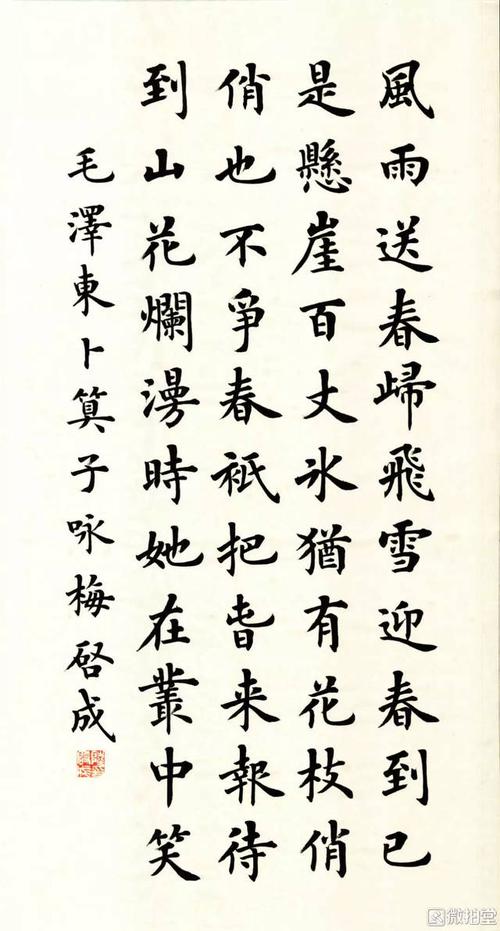 風雨送春歸飛雪迎春到已
是懸崖百丈冰猶有花枝俏
俏也不爭春衹把春来報待
到山花爛漫時她在叢中笑
毛澤東卜算子咏梅啓成
微拍堂